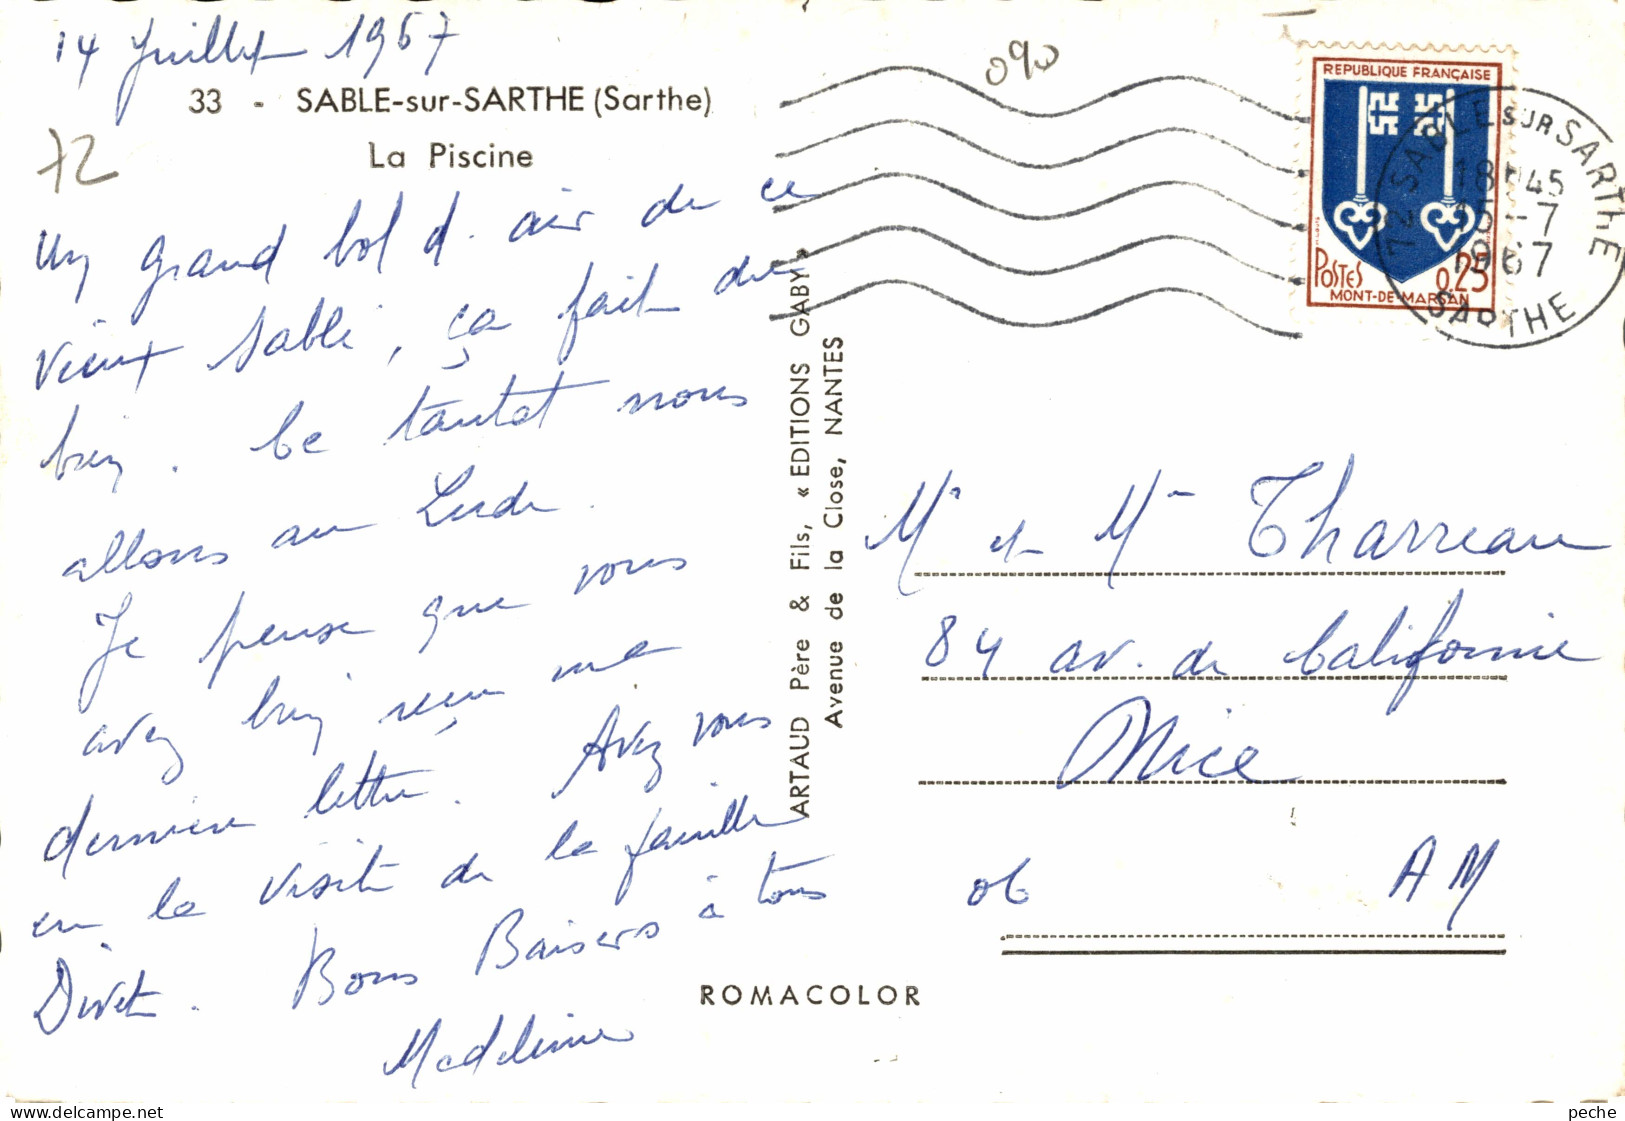 14 Juillet 1967
33 - SABLE-sur-SARTHE (Sarthe)
La Piscine
72
Un grand bol d'air de ce
vieux Sablé, ça fait du
bien. Ce tantôt nous
allons au Lude.
Je pense que vous
avez bien reçu ma
dernière lettre. Avez vous
eu la visite de la famille
Divet. Bons Baisers à tous
Madeleine
ARTAUD Père & Fils, « EDITIONS GABY »
Avenue de la Close, NANTES
ROMACOLOR
090
REPUBLIQUE FRANÇAISE
POSTES 0,25
MONT-DE-MARSAN
72 SABLE SUR SARTHE
18H45
15-7
1967
SARTHE
Mr et Mme Tharreau
84 av. de Californie
Nice
06 AM
delcampe.net
peche